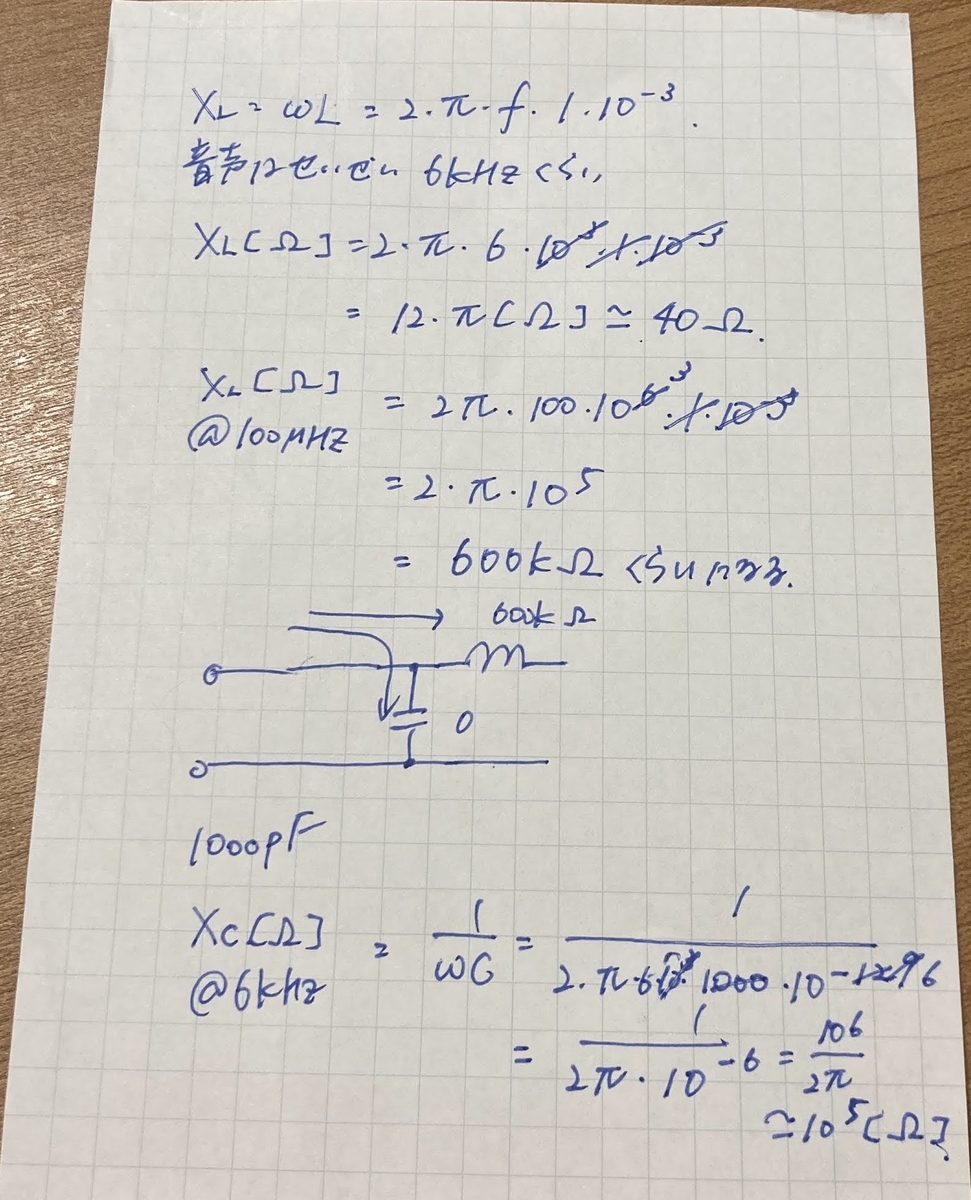 XL = ωL = 2・π・f・1・10⁻³.
音声はせいぜい 6kHzくらい
XL[Ω] = 2・π・6・10³・1・10⁻³
= 12・π[Ω] ≃ 40Ω.
XL[Ω] @100MHz = 2π・100・10⁶ ³・1・10⁻³
= 2・π・10⁵
= 600kΩ くらいになる.
600kΩ
0
1000pF
Xc[Ω] @6kHz = 1/ωC = 1/2・π・6・10³・1000・10⁻
= 1/2π・10⁻⁶ = 10⁶/2π
≃10⁵[Ω]